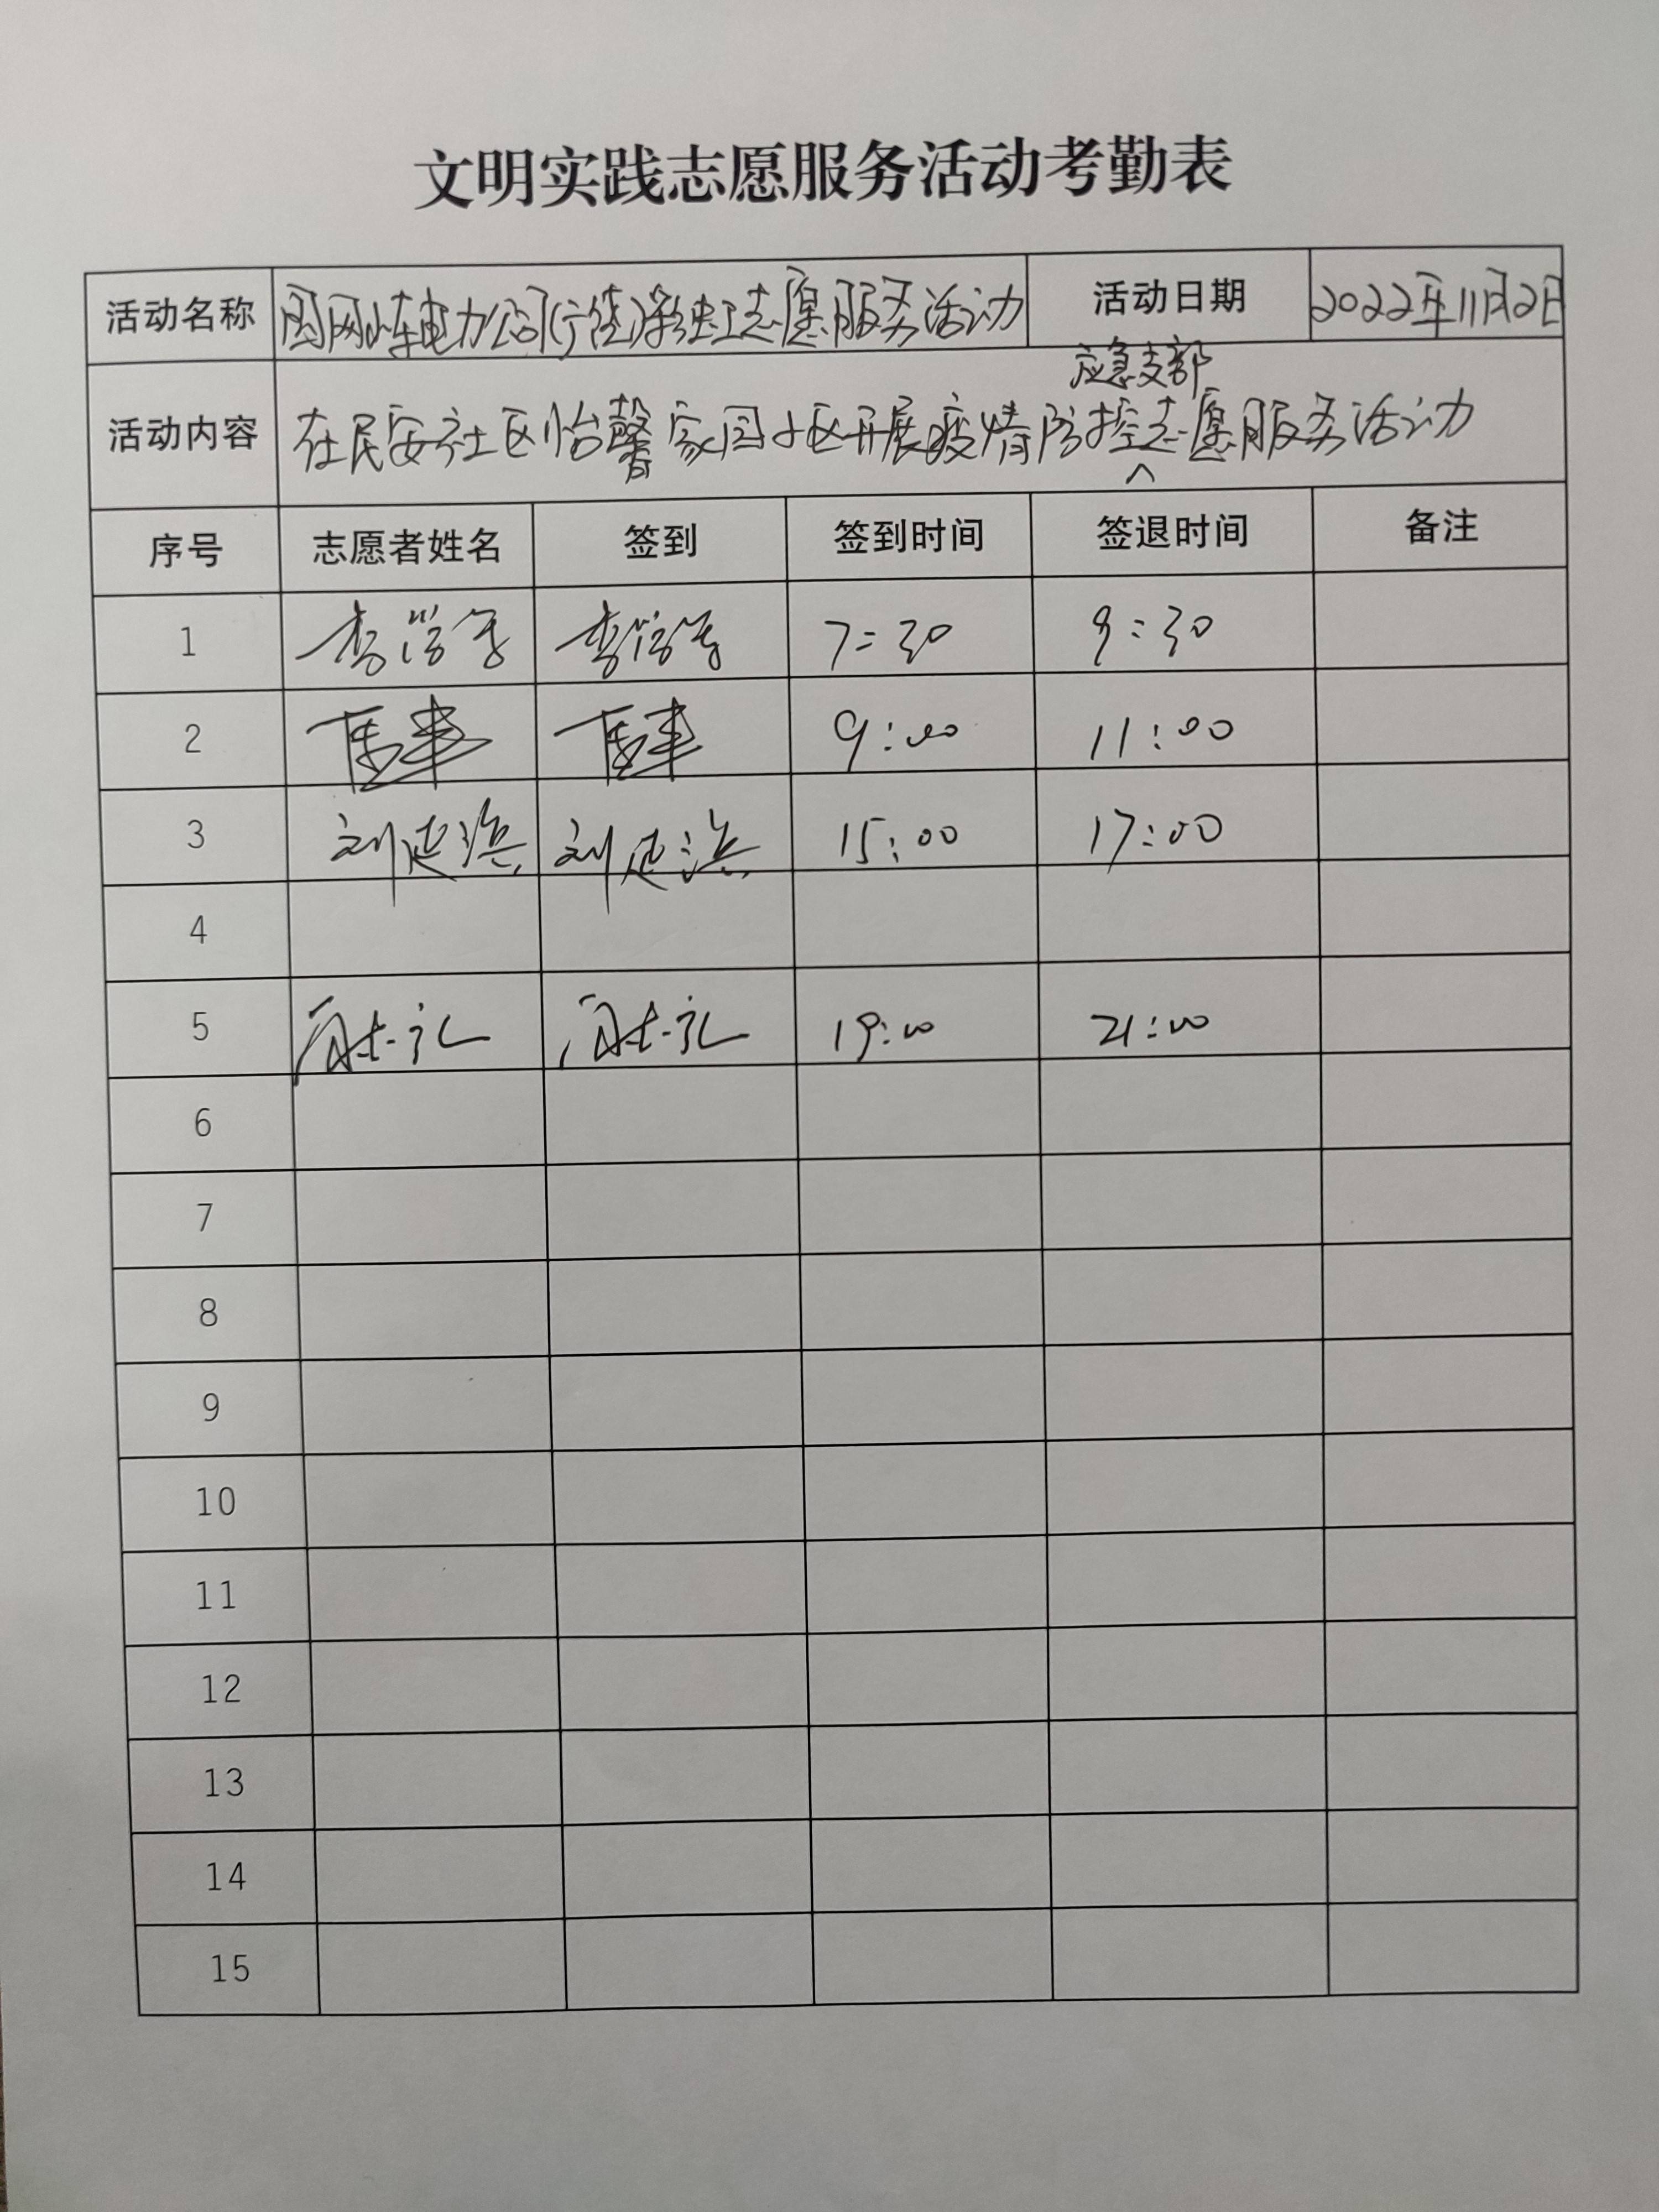 文明实践志愿服务活动考勤表
活动名称 国网山东电力公司(宁德)彩虹志愿服务活动 活动日期 2022年11月2日
应急支部
活动内容 在民安社区怡馨家园小区开展疫情防控志愿服务活动
序号 志愿者姓名 签到 签到时间 签退时间 备注
1 7:30 9:30
2 9:00 11:00
3 刘延滨 刘延滨 15:00 17:00
4
5 19:00 21:00
6
7
8
9
10
11
12
13
14
15